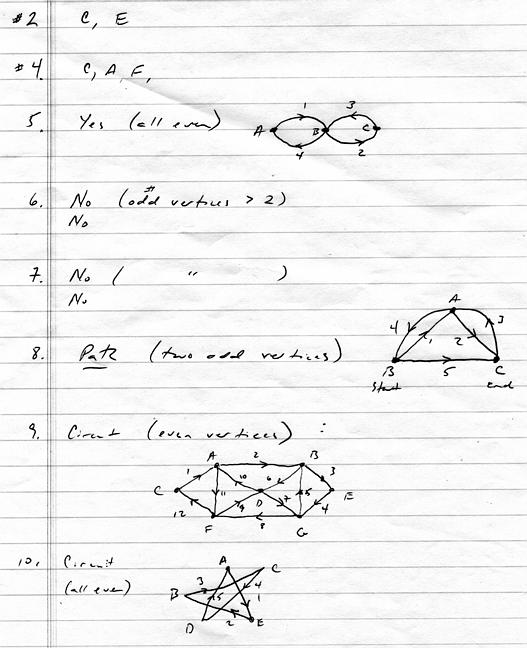 #2 C, E
#4. C, A, F,
5. Yes (all even)
1 3
A B C
4 2
6. No (odd # vertices > 2)
No
7. No ( " )
No
A
4 1 2 3
8. Path (two odd vertices)
B 5 C
Start End
9. Circuit (even vertices) :
A 2 B
1 10 6 3
C 11 D 5 E
12 9 7 4
F 8 G
10. Circuit
(all even)
A C
B 3 5 4 1
D 2 E